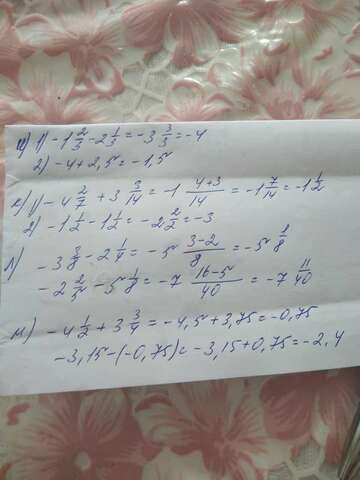 и) 1) -1 2/3 - 2 1/3 = -3 3/3 = -4
2) -4 + 2,5 = -1,5
к) 1) -4 2/7 + 3 3/14 = -1 (4+3)/14 = -1 7/14 = -1 1/2
2) -1 1/2 - 1 1/2 = -2 2/2 = -3
л) -3 3/8 - 2 1/4 = -5 (3-2)/8 = -5 1/8
-2 2/5 - 5 1/8 = -7 (16-5)/40 = -7 11/40
м) -4 1/2 + 3 3/4 = -4,5 + 3,75 = -0,75
-3,15 - (-0,75) = -3,15 + 0,75 = -2,4